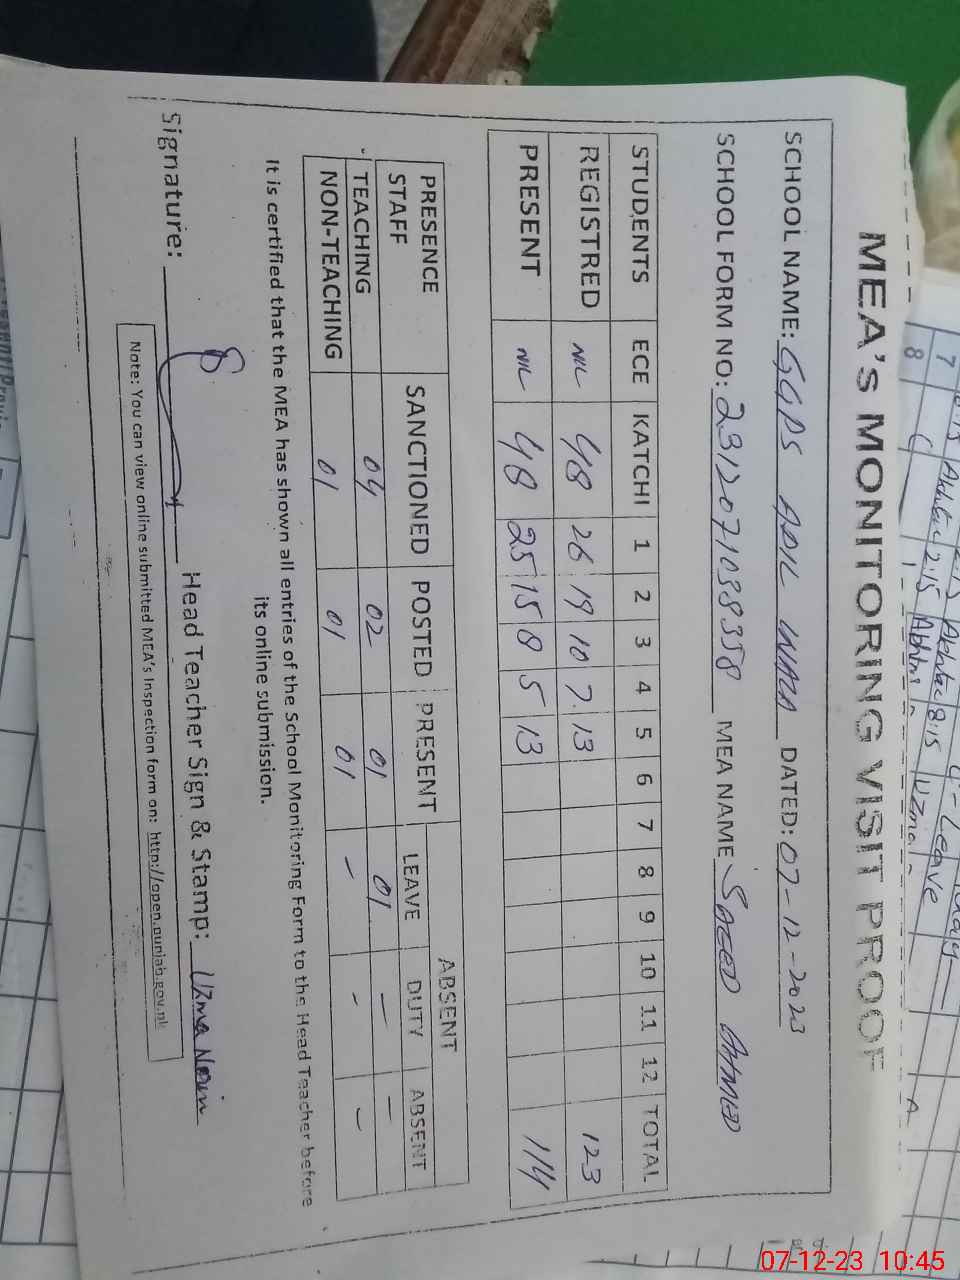 MEA's MONITORING VISIT PROOF
SCHOOL NAME: GGPS ADIL WALA DATED: 07-12-2023
SCHOOL FORM NO: 2312071038358 MEA NAME SAEED AHMED
STUDENTS ECE KATCHI 1 2 3 4 5 6 7 8 9 10 11 12 TOTAL
REGISTRED NIL 48 26 19 10 7 13 123
PRESENT NIL 48 25 15 8 5 13 114
PRESENCE STAFF SANCTIONED POSTED PRESENT ABSENT
LEAVE DUTY ABSENT
TEACHING 04 02 01 01 - -
NON-TEACHING 01 01 01 - - -
It is certified that the MEA has shown all entries of the School Monitoring Form to the Head Teacher before
its online submission.
Signature: Head Teacher Sign & Stamp: Uzma Norin
Note: You can view online submitted MEA's Inspection form on: http://open.punjab.gov.pk
7
8
2:15 8:15 Uzma
Leave
A
07-12-23 10:45